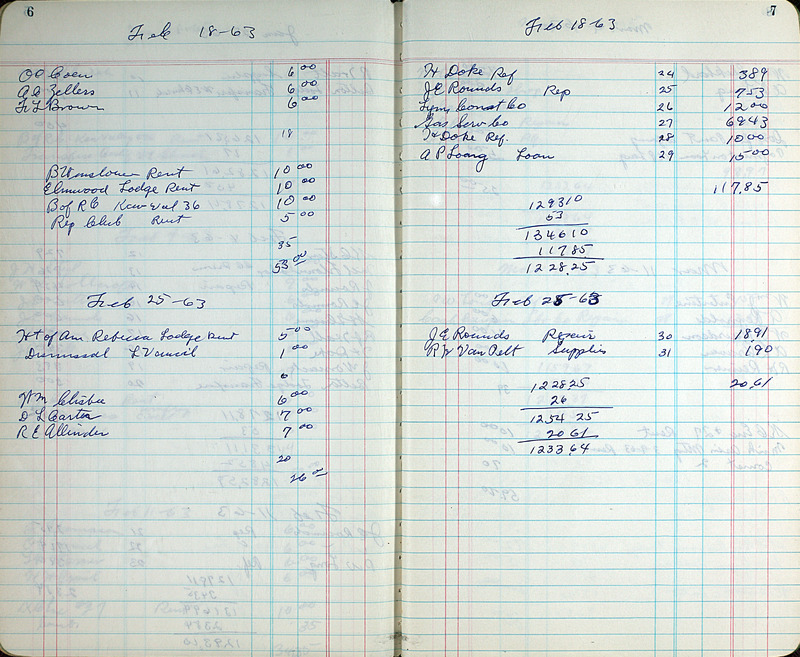 6
Feb 18-63
O O Coen 6 00
A A Zellers 6 00
F L Brown 6 00
18
B Winslow Rent 10 00
Elmwood Lodge Rent 10 00
B of R C 36 10 00
Rep Club Rent 5 00
35
53 00
Feb 25-63
Ht of Am Rebecca Lodge Rent 5 00
L Council 1 00
6
Wm Clisbee 6 00
D L Carter 7 00
R E Allinder 7 00
20
26 00
7
Feb 18-63
H Doke Ref 24 3 89
J E Rounds Rep 25 7 53
Lym Const Co 26 12 00
Gas Serv Co 27 69 43
H Doke Ref. 28 10 00
A P Loang Loan 29 15 00
117.85
1293 10
53
1346 10
117 85
1228.25
Feb 25-63
J E Rounds Repair 30 18 91
R W Van Aelt Supplies 31 1 90
20.61
1228 25
26
1254 25
20 61
1233 64